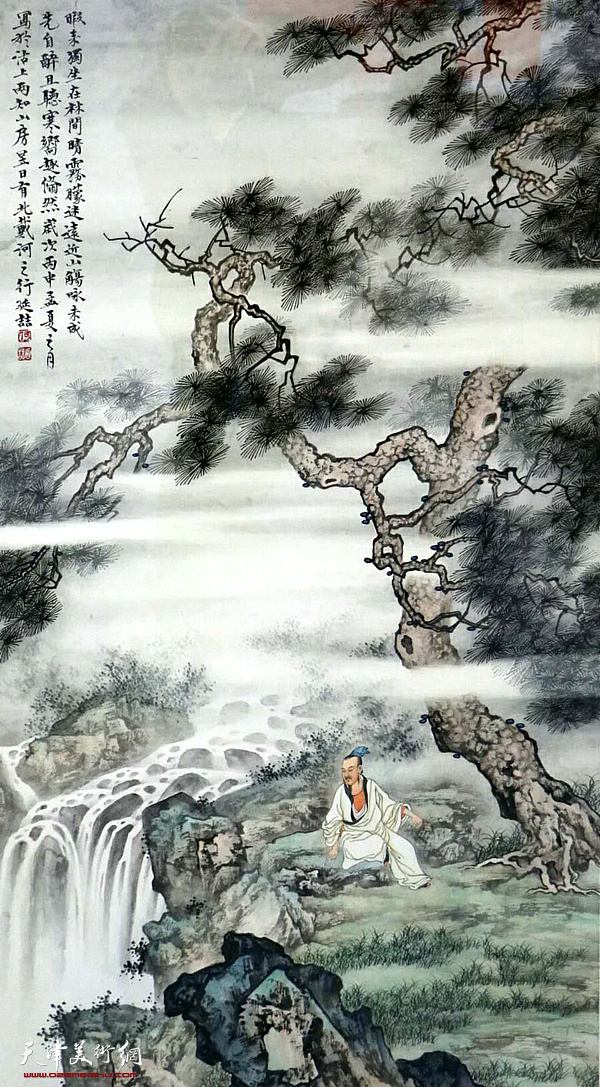 暇来獨坐在林間晴霧朦迷遠近山觴咏未成
先自醉且聽寒響趣翛然歲次丙申孟夏之月
寫於沽上雨知山房昱日有北戴河之行延喆
天津美術網